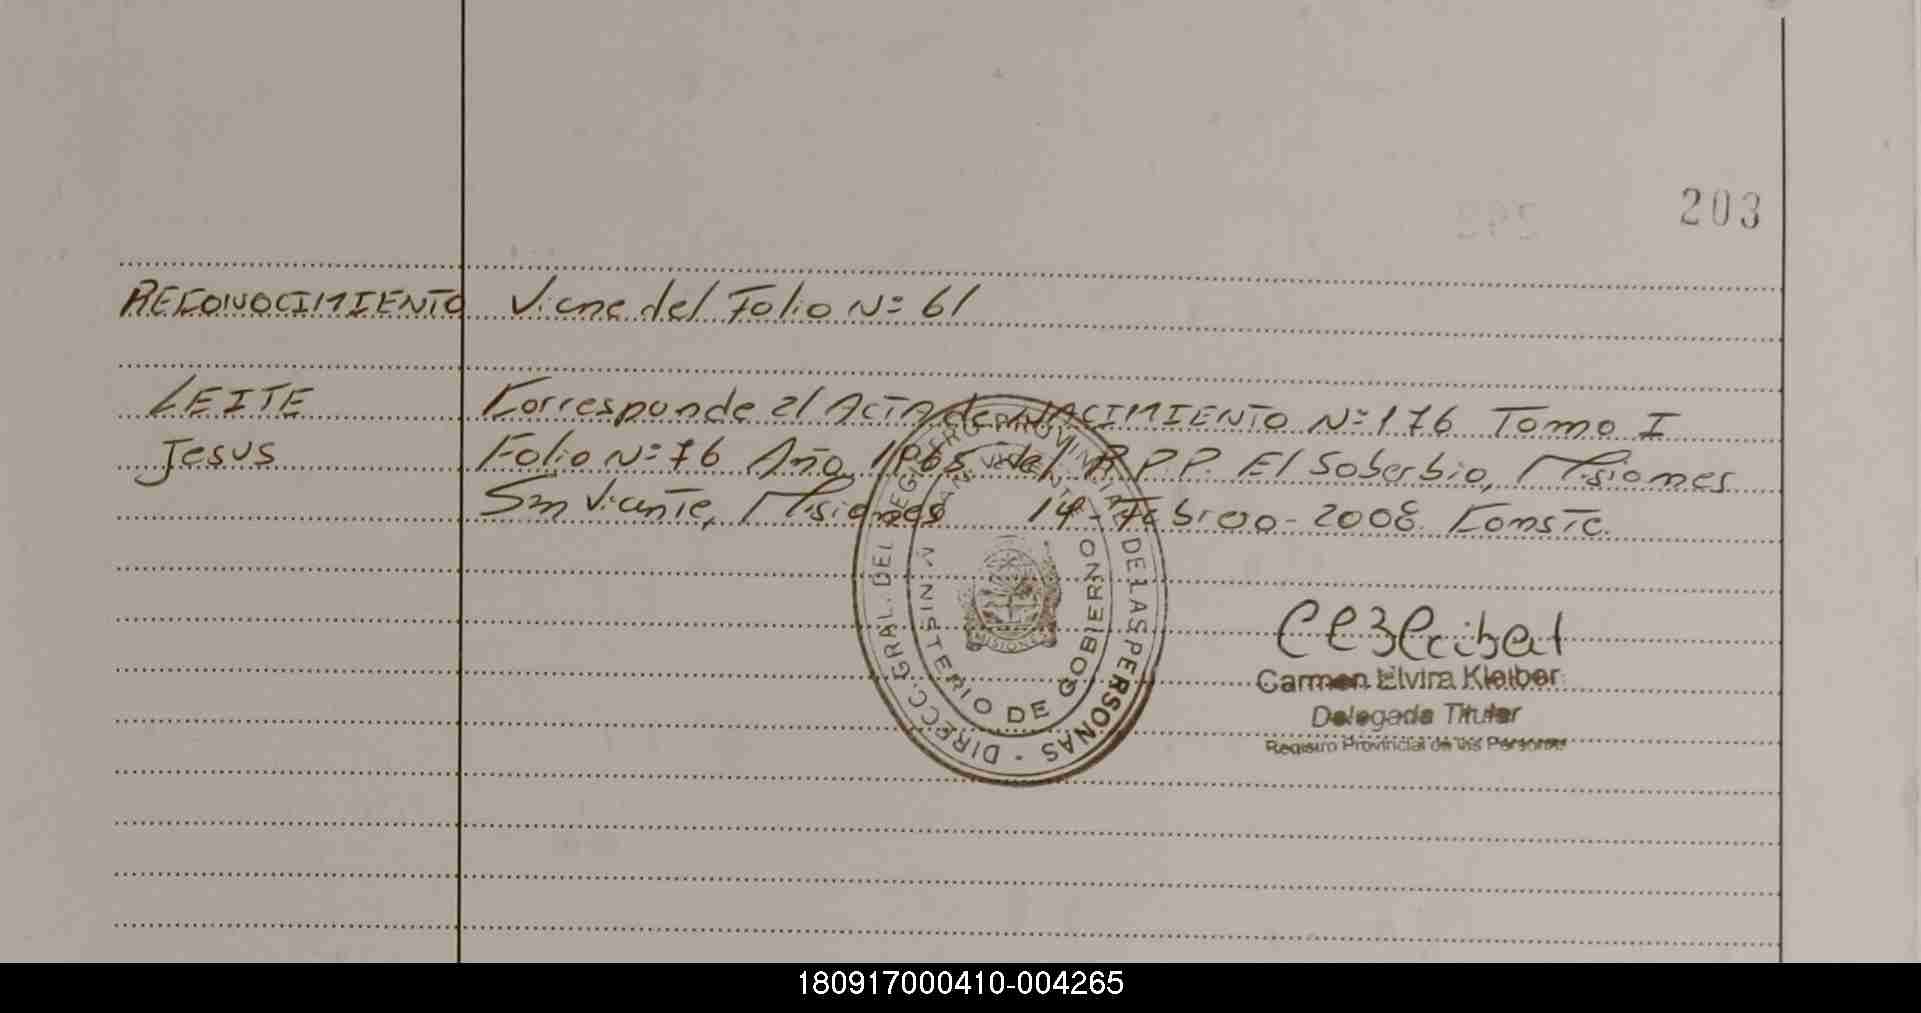 203
RECONOCIMIENTO Viene del Folio Nº 61
LEITE Corresponde al Acta de NACIMIENTO Nº 176 Tomo I
Jesus Folio Nº 76 Año 1965 del R.P.P. El Soberbio, Misiones
San Vicente, Misiones 14-Febrero-2008. Conste.
DIRECC. GRAL. DEL REGISTRO PROVINCIAL DE LAS PERSONAS -
MINISTERIO DE GOBIERNO
MISIONES
Carmen Elvira Kleiber
Delegada Titular
Registro Provincial de las Personas
180917000410-004265